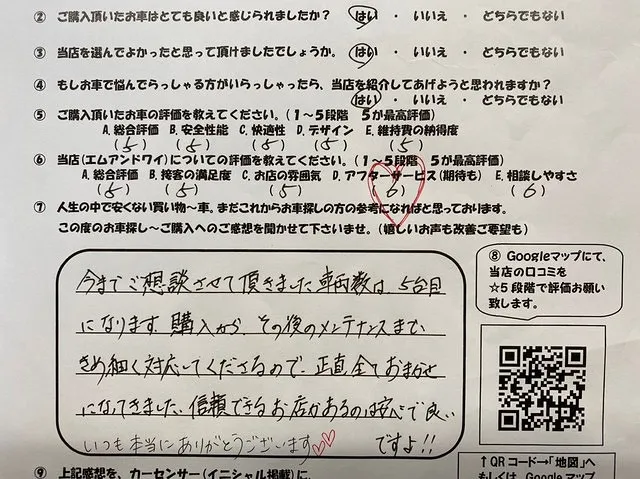 ② ご購入頂いたお車はとても良いと感じられましたか？ はい ・ いいえ ・ どちらでもない
③ 当店を選んでよかったと思って頂けましたでしょうか。 はい ・ いいえ ・ どちらでもない
④ もしお車で悩んでらっしゃる方がいらっしゃったら、当店を紹介してあげようと思われますか？
はい ・ いいえ ・ どちらでもない
⑤ ご購入頂いたお車の評価を教えてください。(１～５段階 ５が最高評価)
A. 総合評価 B. 安全性能 C. 快適性 D. デザイン E. 維持費の納得度
(5) (5) (5) (5) (5)
⑥ 当店(エムアンドワイ)についての評価を教えてください。(１～５段階 ５が最高評価)
A. 総合評価 B. 接客の満足度 C. お店の雰囲気 D. アフターサービス(期待も) E. 相談しやすさ
(5) (5) (5) (6) (6)
⑦ 人生の中で安くない買い物～車。まだこれからお車探しの方の参考になればと思っております。
この度のお車探し～ご購入へのご感想を聞かせて下さいませ。(嬉しいお声も改善ご要望も)
今までご想談させて頂きました車両数は、5台目
になります。購入から、その後のメンテナンスまで、
きめ細く対応してくださるので、正直全ておまかせ
になってきました。信頼できるお店があるのは安心で良い
ですよ!!
いつも本当にありがとうございます♡♡
⑧ Googleマップにて、
当店の口コミを
☆５段階で評価お願い
致します。
↑QRコード→「地図」へ
もしくは Googleマップ
⑨ 上記感想を、カーセンサー(イニシャル掲載)に、